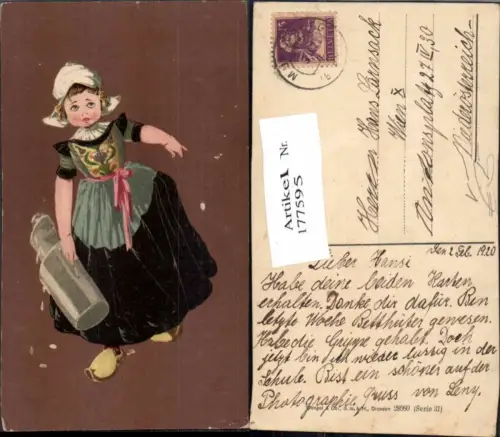 HELVETIA
Artikel Nr.
177595
Herrn Hans
Wien X
27 III, 30
Niederösterreich
Den 2 Feb. 1920
Lieber Hansi
Habe deine beiden Karten
erhalten. Danke dir dafür. Bin
letzte Woche Betthüter gewesen.
Habe die Grippe gehabt. Doch
jetzt bin ich wieder lustig in der
Schule. Bist ein schöner auf der
Photographie. Gruss von Leny.
Stengel & Co., G.m.b.H., Dresden 29060 (Serie III)